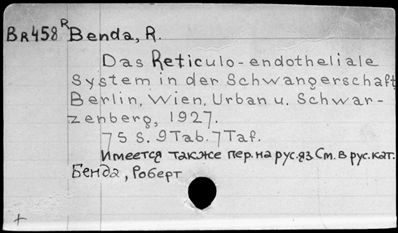 BR458 R Benda, R.
Das Reticulo-endotheliale
System in der Schwangerschaft
Berlin, Wien, Urban u. Schwar-
zenberg, 1927.
75 S. 9 Tab. 7 Taf.
Имеется также пер. на рус. яз См. в рус. кат.
Бенда, Роберт
+